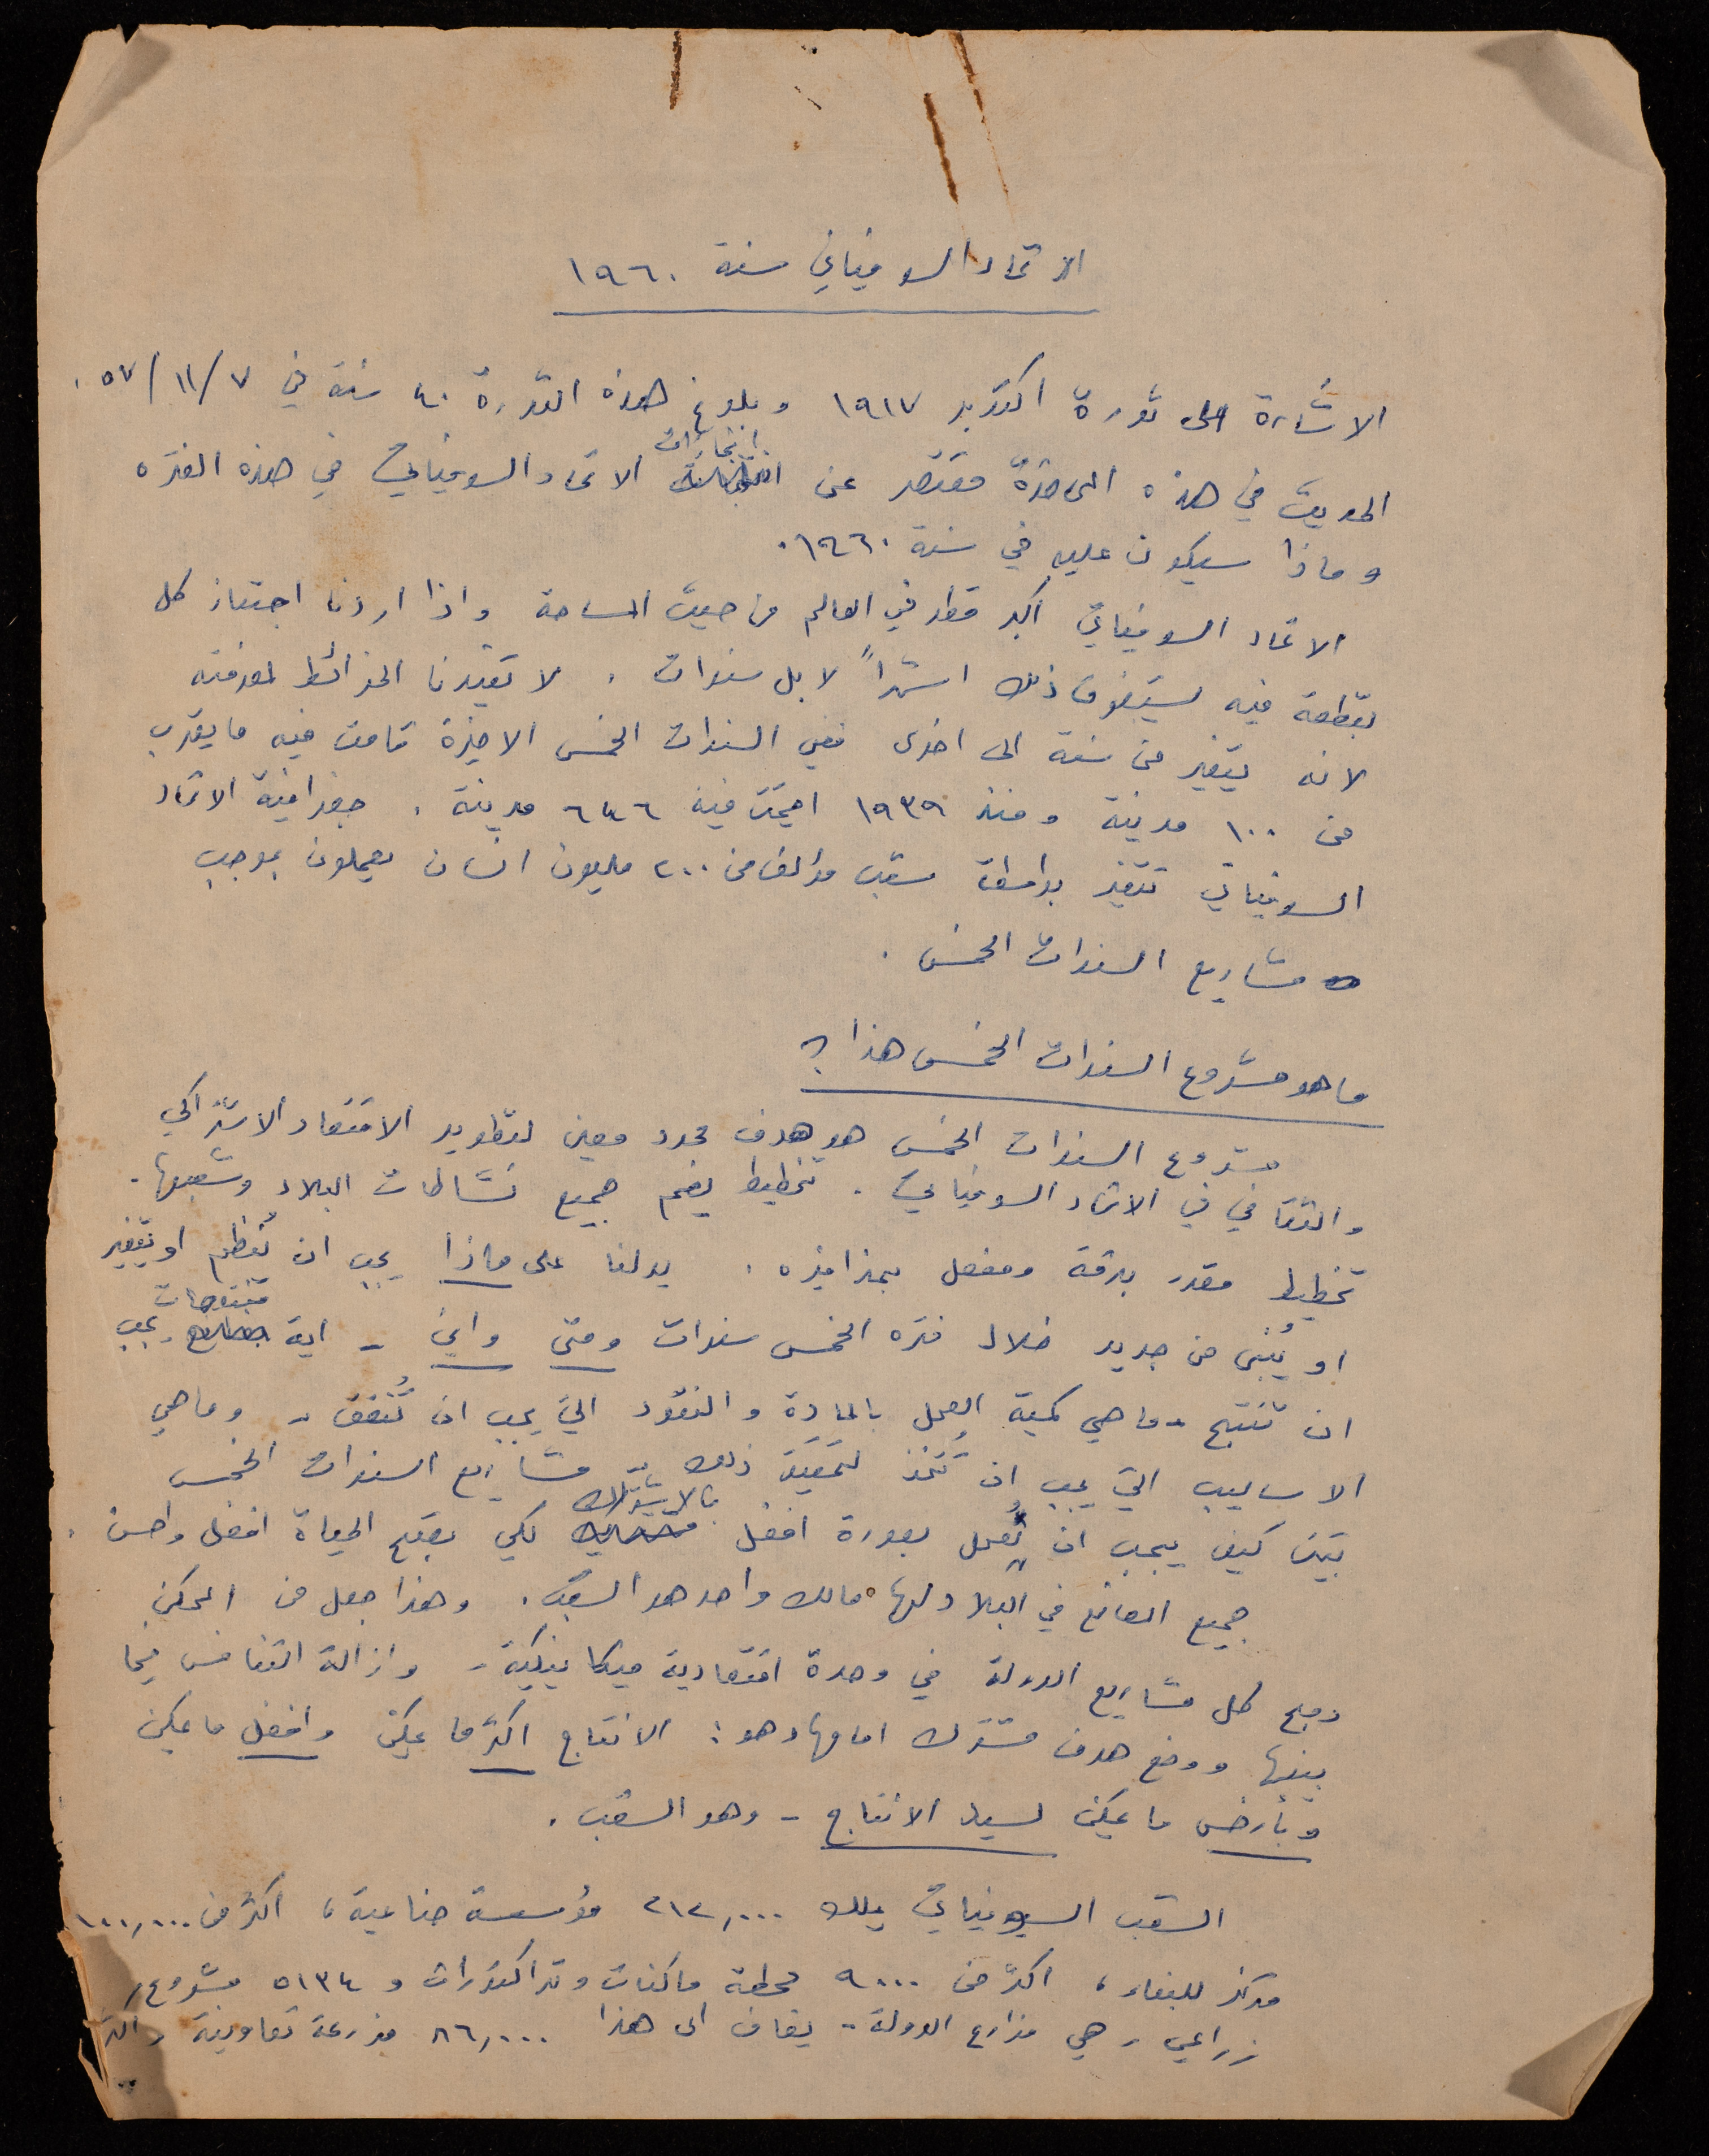 الاتحاد السوفياتي سنة ١٩٦٠
الاشارة الى ثورة اكتوبر ١٩١٧ وبلوغ هذه الثورة ٤٠ سنة في ٥٧/١١/٧.
الحديث في هذه المحاضرة مقتصر عن انجازات الاتحاد السوفياتي في هذه الفتره
وماذا سيكون عليه في سنة ١٩٦٠.
الاتحاد السوفياتي اكبر قطر في العالم من حيث المساحة واذا اردنا اجتياز كل
بقطعة فيه يستغرق ذلك اشهراً لا بل سنوات. لا تفيدنا الخرائط لمعرفته
لانه يتغير من سنة الى اخرى ففي السنوات الخمس الاخيرة قامت فيه ما يقرب
من ١٠٠ مدينة ومنذ ١٩٣٩ اقيمت فيه مدينة. جغرافية الاتحاد
السوفياتي تتغير بواسطة شعب مؤلف من ٢٠٠ مليون انسان يعملون بموجب
مشاريع السنوات الخمس.
ما هو مشروع السنوات الخمس هذا؟
مشروع السنوات الخمس هو هدف محدد معين لتطوير الاقتصاد الاشتراكي
والثقافي في الاتحاد السوفياتي. تخطيط يضم جميع نشاطات البلاد وشعبها.
تخطيط مقدر بدقة ومفصل بحذافيره. يدلنا على ماذا يجب ان يُنظم او يتغير
او يُبنى من جديد خلال فتره الخمس سنوات ومتى واين - اية منتوجات يجب
ان تنتج - ما هي كمية العمل بالمادة والنقود التي يجب ان تُنفق - وما هي
الاساليب التي يجب ان تُتخذ لتحقيق ذلك - مشاريع السنوات الخمس
تبين كيف يجب ان نُعمل بصورة افضل بالاشتراك لكي تصبح الحياة افضل واحسن.
جميع المصانع في البلاد لها مالك واحد هو الشعب. وهذا جعل من الممكن
دمج كل مشاريع الدولة في وحدة اقتصادية ميكانيكية - وازالة التنافس فيما
بينها ووضع هدف مشترك امامها وهو: الانتاج اكثر ما يمكن وافضل ما يمكن
وبأرخص ما يمكن لسيد الانتاج - وهو الشعب.
الشعب السوفياتي يملك ٢١٢,٠٠٠ مؤسسة صناعية، اكثر من ١٠٠,٠٠٠
مركز للبناء، اكثر من ٩٠٠٠ محطة ماكنات وتراكتورات و ٥١٣٤ مشروع
زراعي - هي مزارع الدولة - يضاف الى هذا ٨٦,٠٠٠ مزرعة تعاونية واكثر